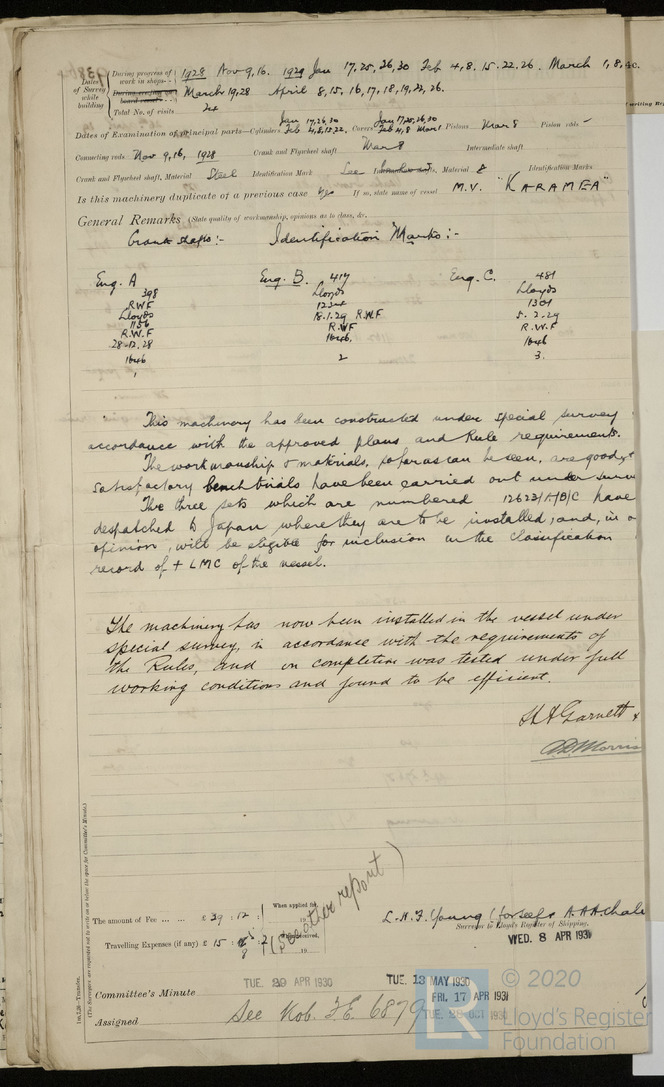 Dates of Survey while building
During progress of work in shops - - 1928 Nov 9, 16. 1929 Jan 17, 25, 26, 30 Feb 4, 8. 15. 22. 26. March 1, 8, &c.
During erection on board vessel - - - March 19, 28 April 8, 15, 16, 17, 18, 19, 22, 26.
Total No. of visits 24
Dates of Examination of principal parts—Cylinders Jan 17, 26, 30 Feb 4, 8, 15, 22, Covers Jan 17, 25, 26, 30 Feb 4, 8 Mar 1 Pistons Mar 8 Piston rods —
Connecting rods Nov 9, 16, 1928 Crank and Flywheel shaft Mar 8 Intermediate shaft
Crank and Flywheel shaft, Material Steel Identification Mark See Material Identification Marks
Is this machinery duplicate of a previous case Yes If so, state name of vessel M.V. "KARAMEA"
General Remarks (State quality of workmanship, opinions as to class, &c.
Crank shafts :- Identification Marks :-
Eng. A Eng. B. 417 Eng. C. 481
398 Lloyds Lloyds
RWF 1301
Lloyds 18.1.29 RWF 5.2.29
1156 RWF R.W.F
R.W.F 1646. 1646
28-12.28 2 3.
1646
1
This machinery has been constructed under special survey
accordance with the approved plans and Rule requirements.
The workmanship & materials, so far as can be seen, are good, &
satisfactory bench trials have been carried out under
The three sets which are numbered 12623/A/B/C have
despatched to Japan where they are to be installed, and, in
opinion, will be eligible for inclusion in the classification
record of + LMC of the vessel.
The machinery has now been installed in the vessel under
special survey, in accordance with the requirements of
the Rules, and on completion was tested under full
working conditions and found to be efficient.
H A Garnett &
Morris
(See other report)
The amount of Fee ... ... £ 39 : 12 : When applied for,
19
Travelling Expenses (if any) £ 15 : When received,
19
L. H. F. Young (for self &
Surveyor to Lloyd's Register of Shipping.
WED. 8 APR 1931
Committee's Minute TUE. 29 APR 1930 TUE. 13 MAY 1930
FRI. 17 APR 1931
Assigned See Kob. F.E. 6879
LR
© 2020
Lloyd's Register
Foundation